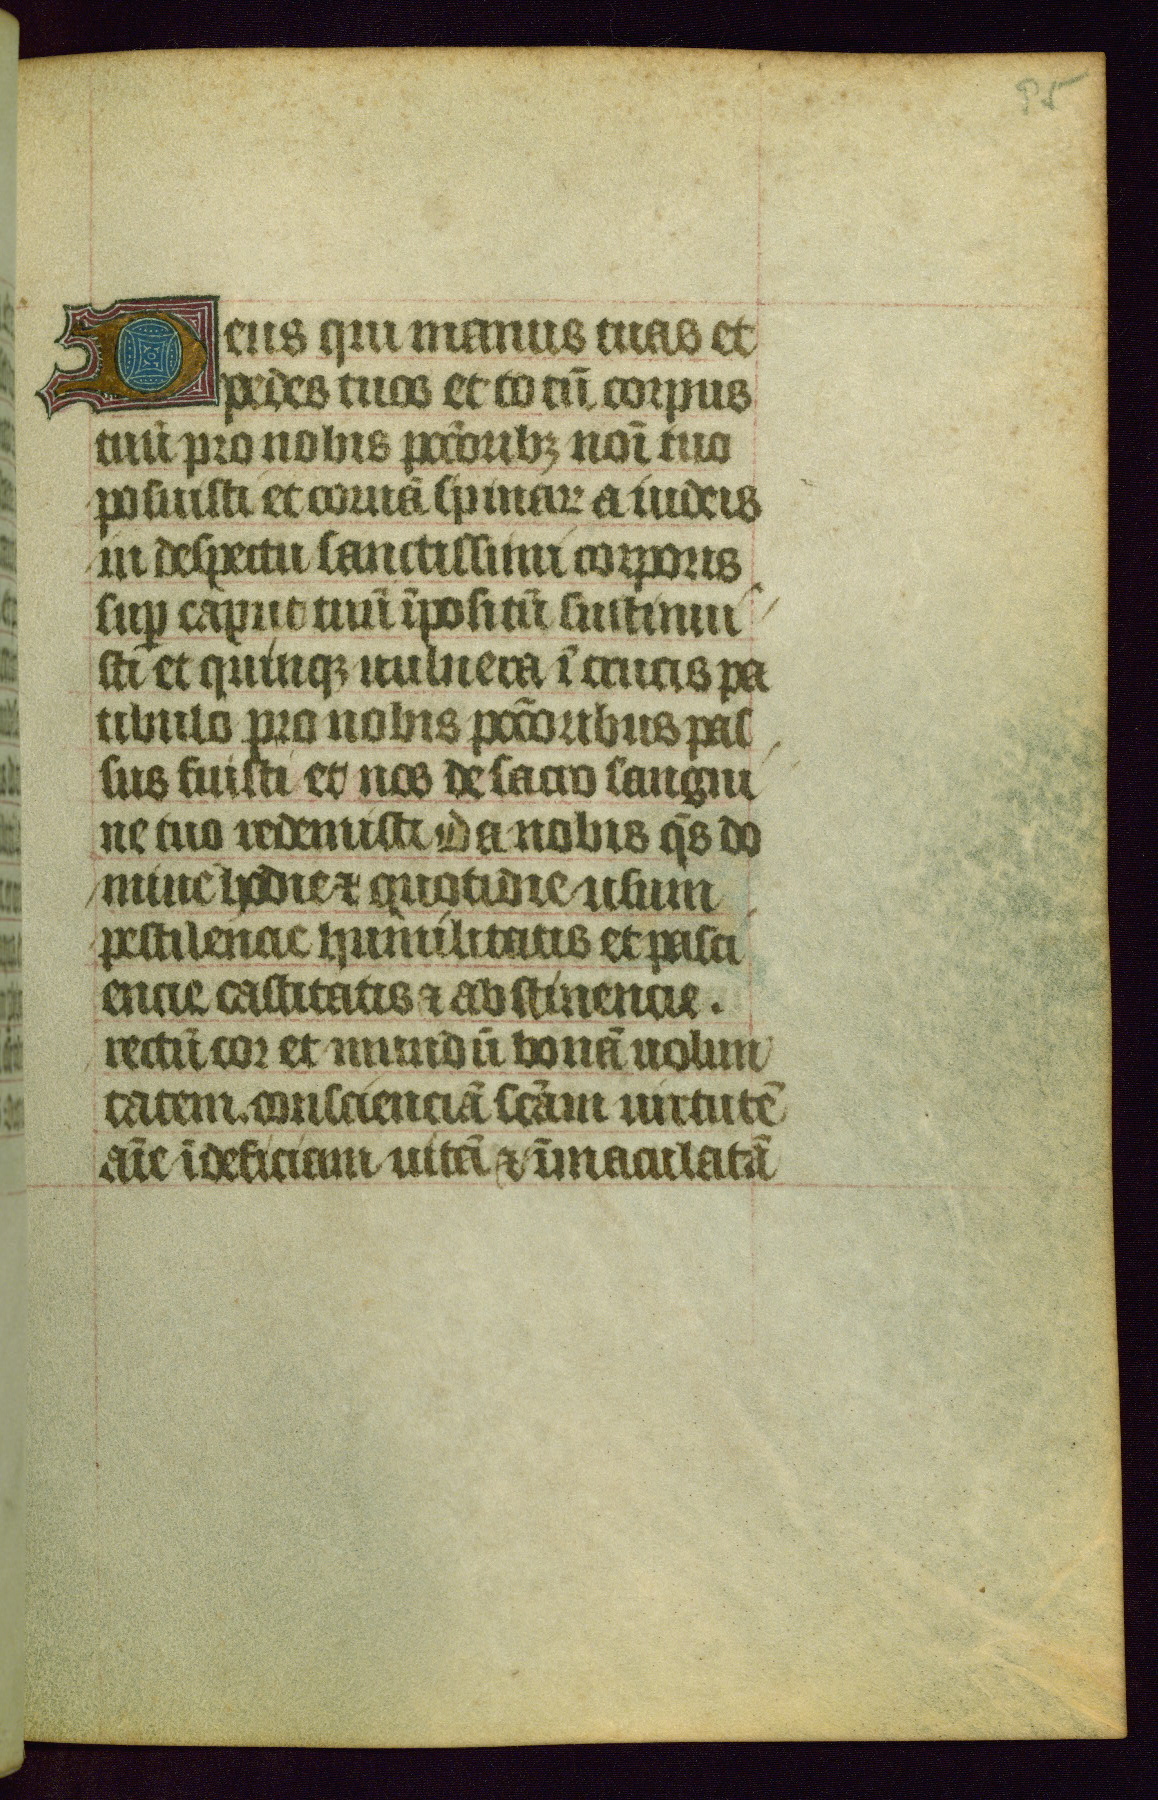 95
Deus qui manus tuas et
pedes tuos et totū corpus
tuū pro nobis pccōribꝫ noī tuo
posuisti et coronā spinar a iudeis
in despectu sanctissimi corporis
suꝑ caput tuū īpositū sustinui
sti et quinqꝫ uulnera ī crucis pa
tibulo pro nobis pccōribus pas
sus fuisti et nos de sacro sangui
ne tuo redemisti Da nobis qs̄ do
mine hodie ⁊ quotidie usum
pestilencie humilitatis et pasci
encie castitatis ⁊ abstinencie.
rectū cor et mundū bonā uolun
tatem. conscienciā scām uirtutē
aīe īdeficiam uitā ⁊ īmaculatā